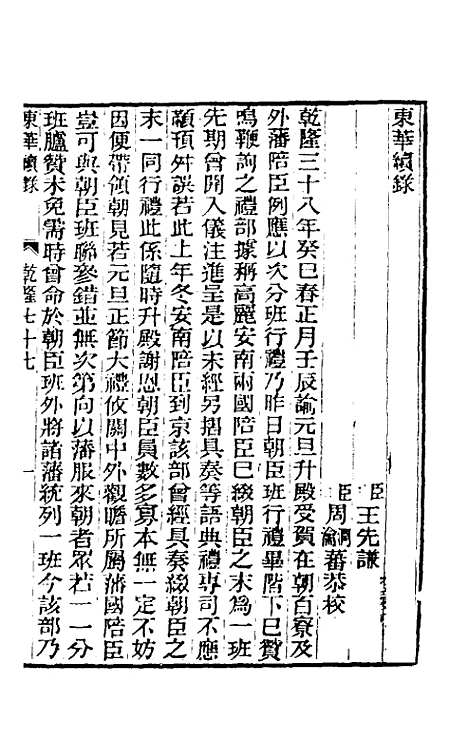 東華續錄
臣王先謙
臣周潤蕃
瀹蕃恭校
乾隆三十八年癸巳春正月壬辰諭元旦升殿受賀在朝百寮及
外藩陪臣例應以次分班行禮乃昨日朝臣班行禮畢階下已贊
鳴鞭詢之禮部據稱高麗安南兩國陪臣已綴朝臣之末為一班
先期曾開入儀注進呈是以未經另摺具奏等語典禮專司不應
顢頇舛誤若此上年冬安南陪臣到京該部曾經具奏綴朝臣之
末一同行禮此係隨時升殿謝恩朝臣員數多寡本無一定不妨
因便帶領朝見若元旦正節大禮攸關中外觀瞻所屬藩國陪臣
豈可與朝臣班聯參錯並無次第向以藩服來朝者眾若一一分
班臚贊未免需時曾命於朝臣班外將諸藩統列一班今該部乃
東華續錄 乾隆七十七 一